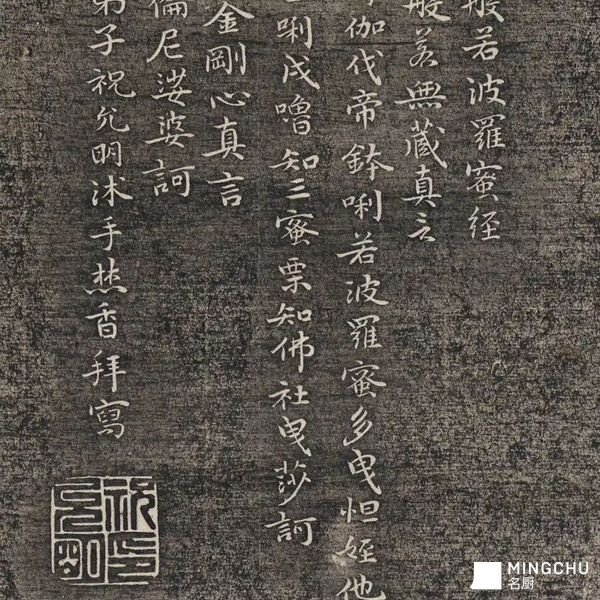 般若波羅蜜经
般若無蔵真言
伽伐帝鉢唎若波羅蜜多曳怛姪他
唎戍嚕知三蜜栗知佛社曳莎訶
金剛心真言
倫尼娑婆訶
弟子祝允明沐手焚香拜寫
祝印允明
MINGCHU
名厨